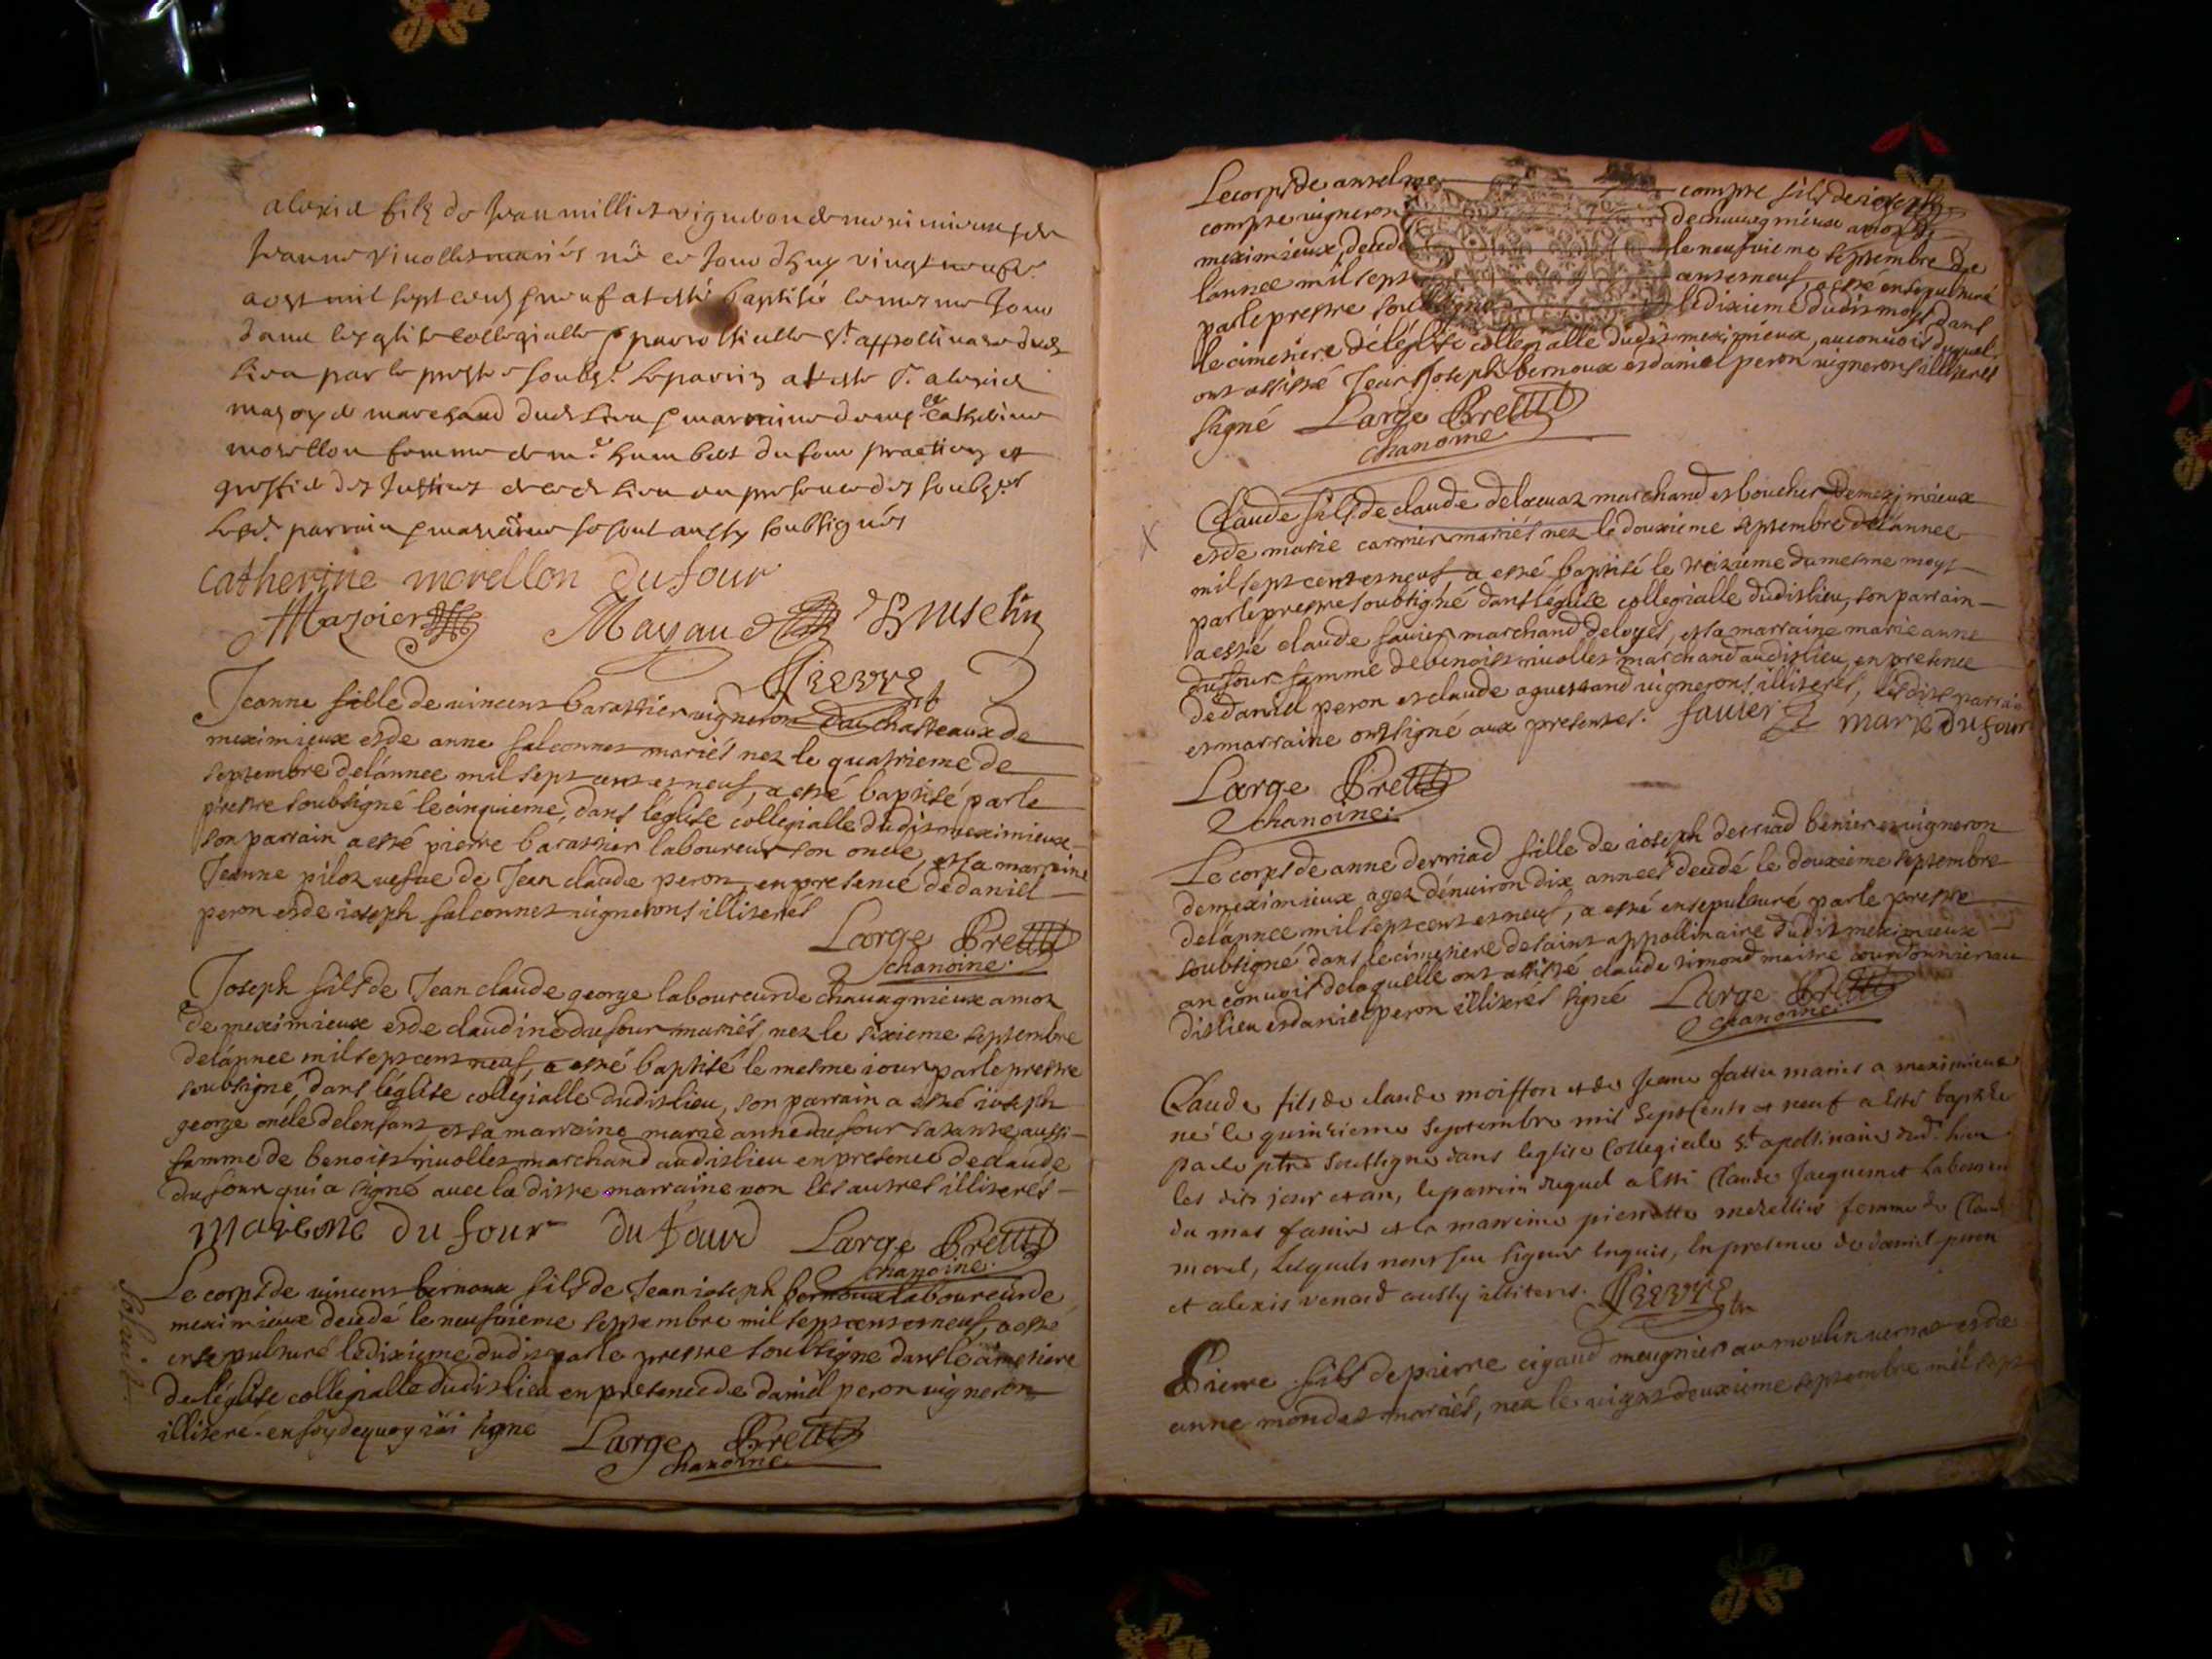 alexis filz de Jean milliet vigneron de meximieux & de
Jeanne Vinollet mariés né ce jour dhuy vingt neufve
aost mil sept cens & neuf at esté baptisé le mesme Jour
dans lesglise collegialle & parrossialle St appollinaire dud
lieu par le prestre soubz.é le parrin at esté s.r alexis
marchand dud lieu & marraine damlle Catherine
morellon femme de m.e humbert dufour practicien et
greffier des Justices de ced. lieu en presence des soubz.és
Lesd. parrain & marraine se sont aussy soubsignés
Catherine morellon dufour
Mazoier Mayaud Bruselin
Jeanne fille de vincent barattier vigneron du chasteaux de
meximieux et de anne falconnet mariés nez le quatrieme de
septembre de l'annee mil sept cent et neuf, a esté baptisé par le
prestre soubsigné le cinquieme, dans l'église collegialle dudit meximieux
son parrain a esté pierre barattier laboureur son oncle, et sa marraine
Jeanne piloz vefue de Jean claude peron, en presence de daniel
peron et de ioseph falconnet vignerons illiterés
Large Bret
chanoine.
Joseph fils de Jean claude george laboureur de chauagnieux amon
de meximieux et de claudine dufour mariés, nez le sixieme septembre
de l'annee mil sept cent neuf, a esté baptisé le mesme iour par le prestre
soubsigné, dans l'église collegialle dudit lieu, son parrain a esté ioseph
george oncle de lenfant, et sa marraine marie anne dufour sa tante aussi
famme de benoist riuollet marchand audit lieu en presence de claude
dufour qui a signé auec la ditte marraine non les autres illiterés
marie ane du four du four Large Bret
chanoine.
Le corps de vincent bernoux fils de Jean ioseph bernoux laboureur de
meximieux decedé le neufuieme septembre mil sept cent et neuf, a esté
ensepulturé le dixieme dudit par le prestre soubsigné dans le cimetiere
de l'église collegialle dudit lieu en presence de daniel peron vigneron
illiteré. en foy de quoy i'ai signé Large Bret
chanoine.
Le corps de anselme compte fils de ioseph
compte vigneron de chauagnieux amon de
meximieux, decedé le neufuieme septembre de
l'annee mil sept cent et neuf, a esté ensepulturé
par le prestre soubsigné le dixieme dudit moys dans
le cimetiere de l'église collegialle dudit meximieux, au conuois duquel
ont assisté Jean Joseph bernoux et daniel peron vignerons illiterés
signé Large Bret
chanoine
Claude fils de claude delaeuaz marchand et boucher de meximieux
et de marie carrier mariés nez le douxieme septembre de l'annee
mil sept cent et neuf, a esté baptisé le treizieme du mesme moys
par le prestre soubsigné dans l'église collegialle dudit lieu, son parrain
a esté claude sauier marchand de loyes, et sa marraine marie anne
dufour famme de benoist riuollet marchand audit lieu, en presence
de daniel peron et claude aguestand vignerons illiterés, lesdits parrain
et marraine ont signé aux presentes. sauier marie du four
Large Bret
chanoine.
Le corps de anne derriad fille de ioseph derriad benier et vigneron
de meximieux agez d'enuiron dix annees decedé le douxieme septembre
de l'annee mil sept cent et neuf, a esté ensepulturé par le prestre
soubsigné dans le cimetiere de saint appollinaire dudit meximieux
au conuois de laquelle ont assisté claude simond maitre cordonnier au
dit lieu et daniel peron illiterés signé Large Bret
chanoine.
Claude fils de claude moiffon et de Jeane mariés a meximieux
né le quinzieme septembre mil sept Cents et neuf a esté baptisé
par le ptre soussigné dans leglise Collegiale St apollinaire dud. lieu
les dits jour et an, le parrein duquel a esté Claude Jacquemet laboureur
du mas et la marreine pierrette femme de Claude
morel, lesquels nont seu signer enquis, en presence de daniel peron
et alexis venard aussy illiterés.
Pierre fils de pierre cigaud meugnier au moulin vernat et de
anne mondet mariés, nez le vingt deuxieme septembre mil sept